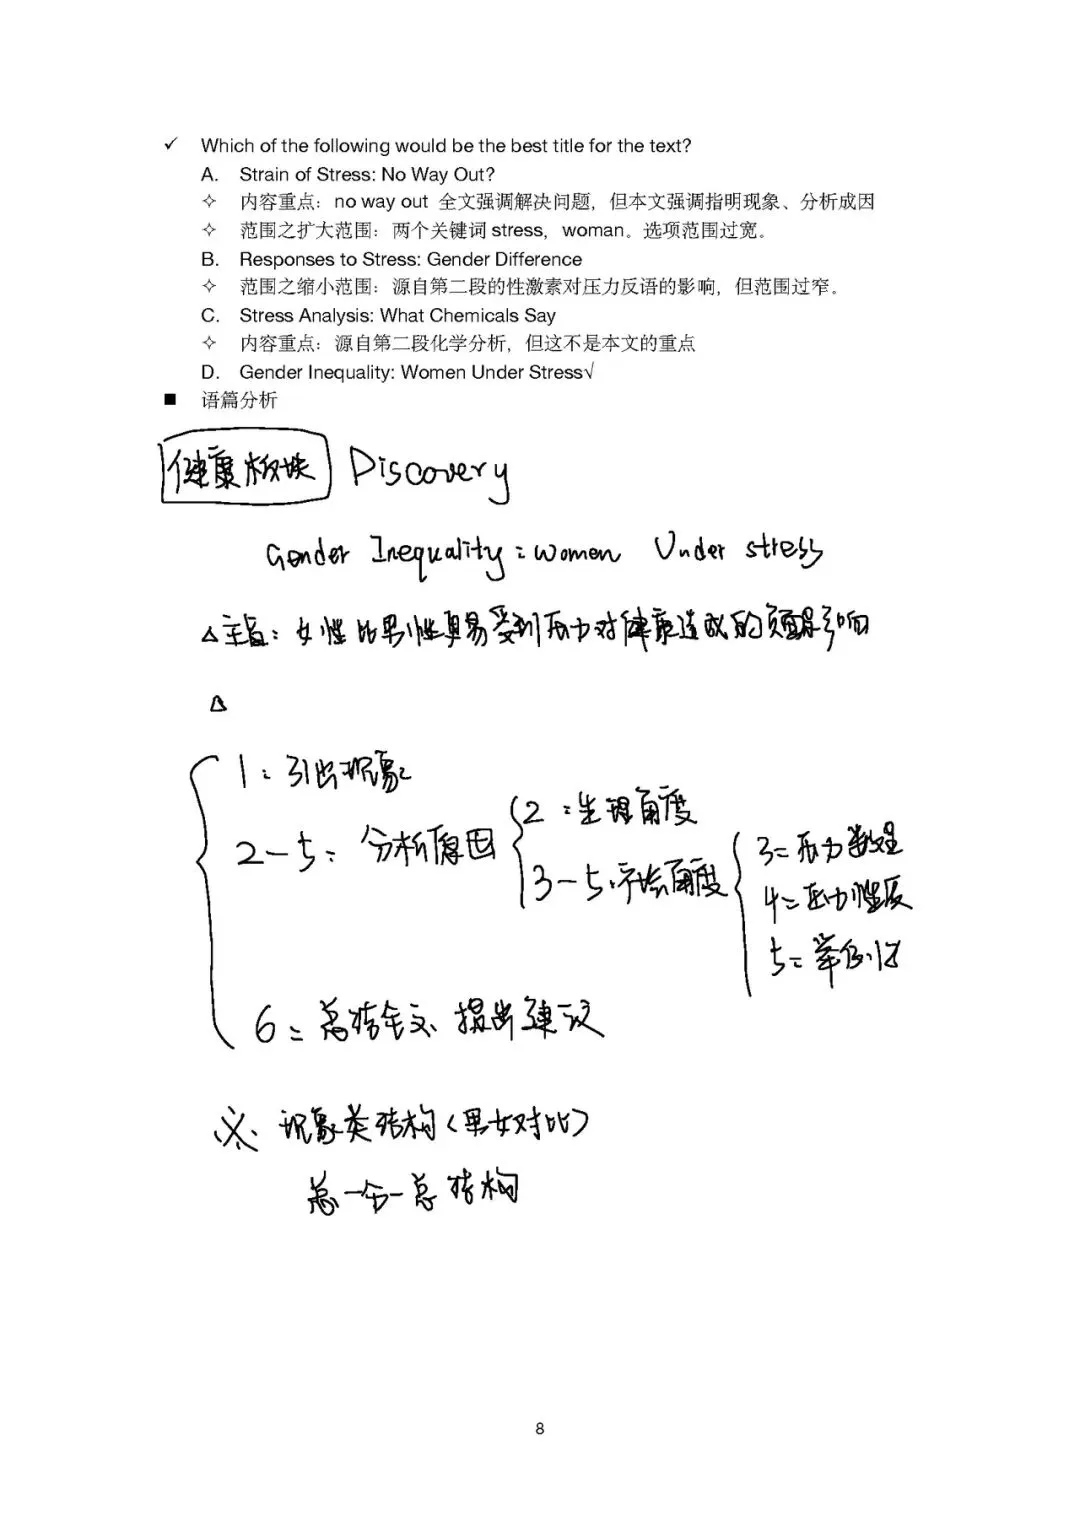 ✓ Which of the following would be the best title for the text?
A. Strain of Stress: No Way Out?
✧ 内容重点：no way out 全文强调解决问题，但本文强调指明现象、分析成因
✧ 范围之扩大范围：两个关键词 stress，woman。选项范围过宽。
B. Responses to Stress: Gender Difference
✧ 范围之缩小范围：源自第二段的性激素对压力反语的影响，但范围过窄。
C. Stress Analysis: What Chemicals Say
✧ 内容重点：源自第二段化学分析，但这不是本文的重点
D. Gender Inequality: Women Under Stress√
■ 语篇分析
健康板块 Discovery
Gender Inequality: women Under stress
△主旨：女性比男性更易受到压力对健康造成的负面影响
△
1：引出现象
2-5：分析原因
2：生理角度
3-5：社会角度
3：压力数量
4：压力性质
5：举例
6：总结全文、提出建议
※ 现象类结构（男女对比）
总-分-总结构
8